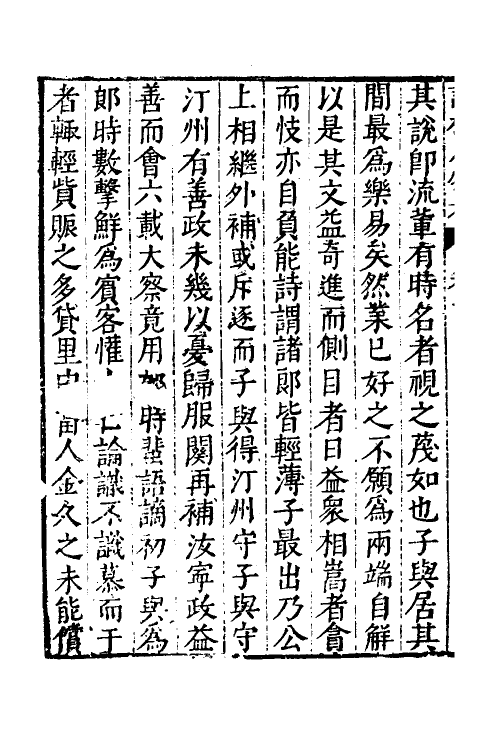 其說即流輩有時名者視之蔑如也子與居其
間最爲樂易矣然業已好之不願爲兩端自解
以是其文益奇進而側目者日益衆相嵩者貪
而忮亦自負能詩謂諸郎皆輕薄子最出乃公
上相繼外補或斥逐而子與得汀州守子與守
汀州有善政未幾以憂歸服闋再補汝寧政益
善而會六載大察竟用 時蜚語謫初子與爲
郎時數擊鮮爲賓客懽 仁論議不識慕而于
者輒輕貲賑之多貸里中 人金久之未能償